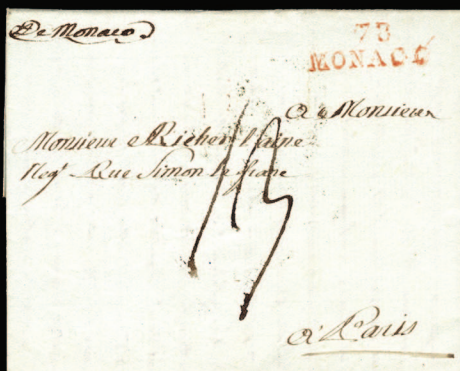 De Monaco
78
MONACO
A Monsieur
Monsieur Richer L'aine
Neg! Rue Simon le franc
13
a Paris